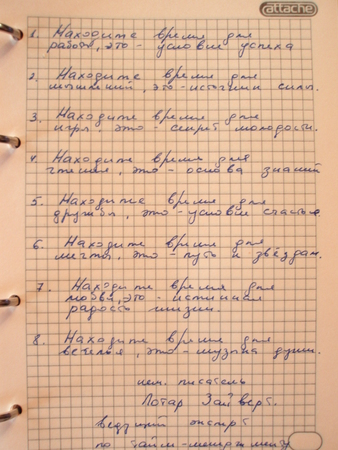 attache
1. Находите время для
работы, это - условие успеха
2. Находите время для
мышлений, это - источник силы.
3. Находите время для
игры, это - секрет молодости.
4. Находите время для
чтения, это - основа знаний
5. Находите время для
дружбы, это - условие счастья
6. Находите время для
мечты, это - путь к звёздам.
7. Находите время для
любви, это - истинная
радость жизни.
8. Находите время для
веселья, это - музыка души.
нем. писатель
Лотар Зайверт.
ведущий эксперт
по тайм-менеджменту